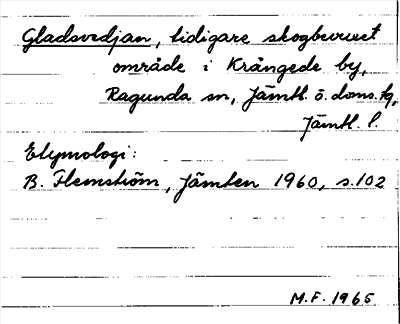 Gladsvedjan, tidigare skogbevuxet
område i Krångede by,
Ragunda sn, Jämtl. ö. doms. fq,
Jämtl. l.
Etymologi:
B. Flemström, Jämten 1960, s. 102
M.F. 1965